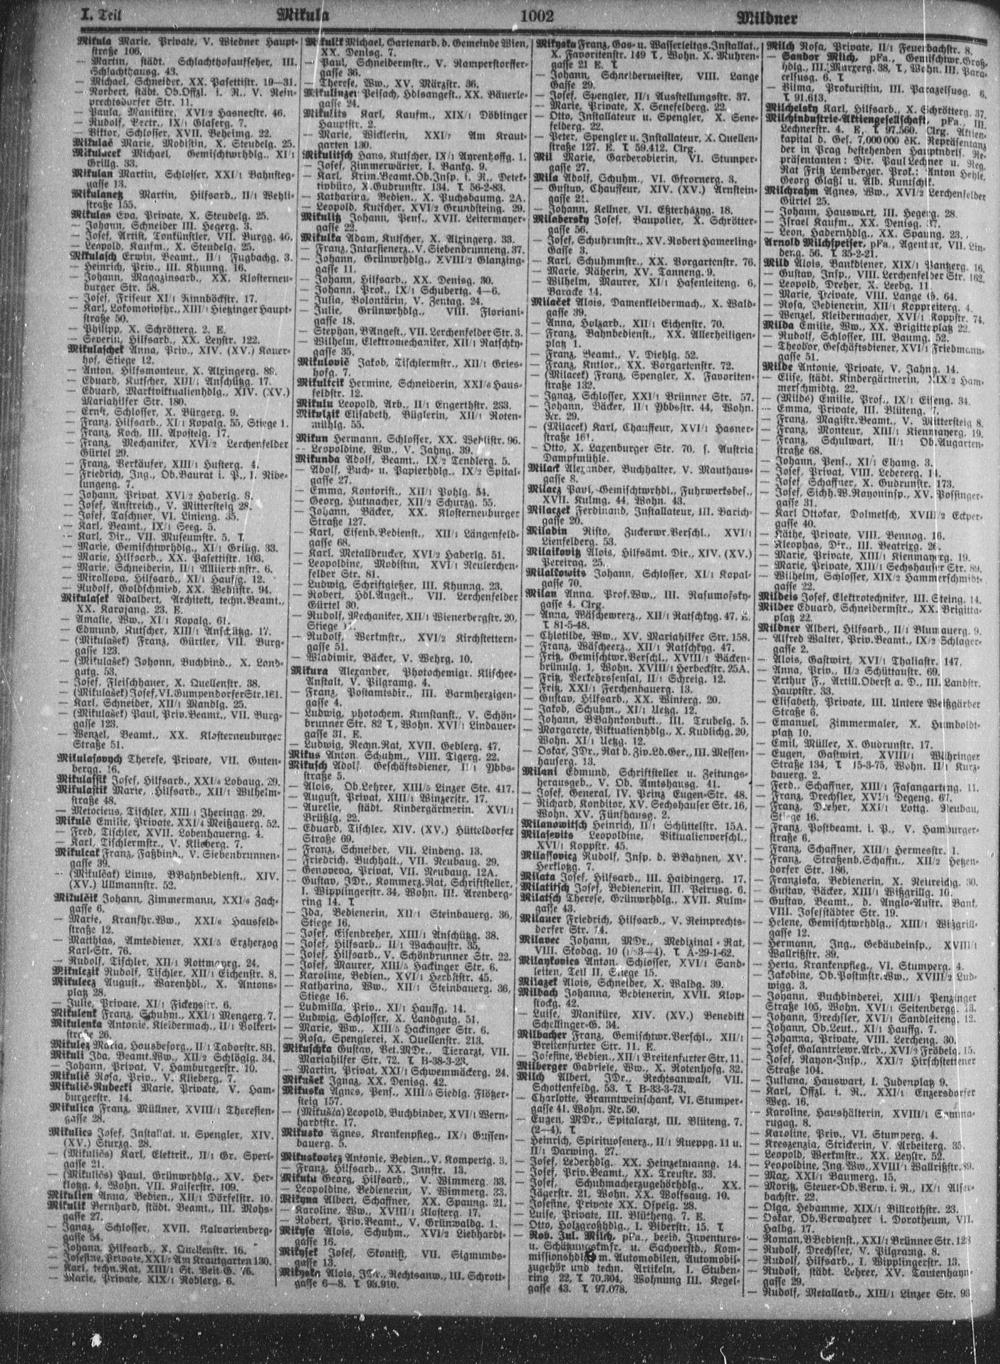 I. Teil
Mikula
1002
Mildner
Mikula Marie, Private, V. Wiedner Haupt-
straße 106.
— Martin, städt. Schlachthofaufseher, III.
Schlachthausg. 43.
— Michael, Schneider, XX. Pasettistr. 19—31.
— Norbert, städt. Ob.Offzl. i. R., V. Rein-
prechtsdorfer Str. 11.
— Paula, Maniküre, XVI/2 Hasnerstr. 46.
— Rudolf, Lectr., IX/1 Glaserg. 7.
— Viktor, Schlosser, XVII. Beheimg. 22.
Mikulaš Marie, Modistin, X. Steudelg. 25.
Mikulacek Michael, Gemischtwrhdlg. XI/1
Grillg. 33.
Mikulan Martin, Schlosser, XXI/1 Bahnsteg-
gasse 13.
Mikulanetz Martin, Hilfsarb., II/1 Wehli-
straße 155.
Mikulas Eva, Private, X. Steudelg. 25.
— Johann, Schneider III. Hegerg. 3.
— Josef, Artist, Tonkünstler, VII. Burgg. 46.
— Leopold, Karlmt., X. Steudelg. 25.
Mikulasch Erwin, Beamt., II/1 Fugbachg. 3.
— Heinrich, Priv., III. Khunng. 16.
— Johann, Magazinsarb., XX. Klosterneu-
burger Str. 58.
— Josef, Friseur XI/1 Rinnböckstr. 17.
— Karl, Lokomotivfhr., XIII/1 Hietzinger Haupt-
straße 50.
— Philipp, X. Schrötterg. 2. E.
— Severin, Hilfsarb., XX. Leystr. 122.
Mikulaschek Anna, Priv., XIV. (XV.) Kauer-
hof, Stiege 12.
— Anton, Hilfsmonteur, X. Alxingerg. 89.
— Eduard, Kutscher, XIII/1 Anschützg. 17.
— Eduard, Marktviktualienhdlg., XIV. (XV.)
Mariahilfer Str. 180.
— Ernst, Schlosser, X. Bürgerg. 9.
— Franz, Hilfsarb., XI/1 Kopalg. 55, Stiege 1.
— Franz, Koch, III. Apostelg. 17.
— Franz, Mechaniker, XVI/2 Lerchenfelder
Gürtel 29.
— Franz, Verkäufer, XIII/1 Husterg. 4.
— Friedrich, Ing., Ob.Baurat i. P., I. Nibe-
lungeng. 7.
— Johann, Privat, XVI/2 Haberlg. 8.
— Josef, Anstreich., V. Mittersteig 28.
— Josef, Taschner, VI. Linieng. 35.
— Karl, Beamt., IX/1 Seeg. 5.
— Karl, Dir., VII. Museumstr. 5. T.
— Marie, Gemischtwrhdlg. XI/1 Grillg. 33.
— Marie, Hilfsarb., XX. Pasettistr. 103.
— Marie, Schneiderin, II/1 Alliiertenstr. 6.
— Miroslova, Hilfsarb., XI/1 Hauffg. 12.
— Rudolf, Goldschmied, XX. Wehlistr. 94.
Mikulasek Adalbert, Architekt, techn.Beamt.,
XX. Karajang. 23. E.
— Amalie, Ww., XI/1 Kopalg. 61.
— Edmund, Kutscher, XIII/1 Anschützg. 17.
— (Mikulašek) Franz, Gürtler, VII. Burg-
gasse 123.
— (Mikulašek) Johann, Buchbind., X. Land-
gutg. 53.
— Josef, Fleischhauer, X. Quellenstr. 38.
— (Mikulašek) Josef, VI. Gumpendorfer Str. 161.
— Karl, Schneider, XII/1 Mandlg. 25.
— (Mikulašek) Paul, Priv.Beamt., VII. Burg-
gasse 123.
— Wenzel, Beamt., XX. Klosterneuburger
Straße 51.
Mikulasovych Therese, Private, VII. Guten-
bergg. 16.
Mikulastik Josef, Hilfsarb., XXI/6 Lobaug. 29.
Mikulaštik Marie, Hilfsarb., XII/1 Wilhelm-
straße 48.
— Metocieus, Tischler, XIII/1 Jheringg. 29.
Mikulé Emilie, Private, XXI/4 Meißauerg. 52.
— Fred, Tischler, XVII. Lobenhauerng. 4.
— Karl, Tischlermstr., V. Kliebergg. 7.
Mikulcak Franz, Faßbind., V. Siebenbrunnen-
gasse 39.
— (Mikulčak) Linus, BBahnbedienst., XIV.
(XV.) Ullmannstr. 52.
Mikulčik Johann, Zimmermann, XXI/6 Zach-
gasse 6.
— Marie, Kranfhr.Ww., XXI/6 Hausfeld-
straße 12.
— Matthias, Amtsdiener, XXI/5 Erzherzog
Karl-Str. 76.
— Rudolf, Tischler, XII/1 Rottmayrg. 24.
Mikulezik Rudolf, Tischler, XII/1 Eichenstr. 8.
Mikulecz August., Warenhdl., X. Antons-
platz 28.
— Julie, Private, XI/1 Fickeysstr. 6.
Mikulenk Franz, Schuhm., XXI/1 Mengerg. 7.
Mikulenka Antonie, Kleidermach., II/1 Volkert-
straße 26.
Mikulez Maria, Hausbesorg., II/1 Taborstr. 8B.
Mikuli Ida, Beamt.Ww., XII/2 Schlöglg. 34.
— Johann, Privat, V. Hamburgerstr. 10.
Mikulič Rosa, Priv., V. Klieberg. 7.
Mikulič-Rubecki Marie, Private, V. Ham-
burgerstr. 14.
Mikulica Franz, Müllner, XVIII/1 Theresien-
gasse 28.
Mikulics Josef, Installat. u. Spengler, XIV.
(XV.) Sturzg. 28.
— (Mikulics) Karl, Elektrik., II/1 Gr. Sperl-
gasse 21.
— (Mikulics) Paul, Grünwrhdlg., XV. Her-
klotzg. 4, Wohn. VII. Kaiserstr. 109.
Mikulien Anna, Bedien., XII/1 Dörfelstr. 10.
Mikulik Bernhard, städt. Beamt., III. Mohs-
gasse 27.
— Ignaz, Schlosser, XVII. Kalvarienberg-
gasse 54.
— Johann, Hilfsarb., X. Quellenstr. 16.
— Josefine, Private, XXI/2 Am Krautgarten 130.
— Karl, techn.Rat, XIII/1 St. Veit-G. 76.
— Marie, Private, XIX/1 Koblerg. 6.
Mikulik Michael, Gartenarb. d. Gemeinde Wien,
XX. Denisg. 7.
— Paul, Schneidermstr., V. Ramperstorffer-
gasse 36.
— Therese, Ww., XV. Märzstr. 36.
Mikulinzer Peisach, Hdlsangest., XX. Bäuerle-
gasse 24.
Mikulits Karl, Kaufm., XIX/1 Döblinger
Hauptstr. 2.
— Marie, Wicklerin, XXI/2 Am Kraut-
garten 130.
Mikulitsch Hans, Kutscher, IX/1 Ayrenhoffg. 1.
— Josef, Zimmerwärter, I. Bankg. 9.
— Karl, Krim.Beamt.Ob.Insp. i. R., Detek-
tivbüro, X. Gudrunstr. 134. T. 56-2-83.
— Katharina, Bedien., X. Puchsbaumg. 2A.
— Leopold, Kutscher, XVI/2 Grundsteing. 29.
Mikulitz Johann, Pens., XVII. Leitermayer-
gasse 22.
Mikulka Adam, Kutscher, X. Alxingerg. 33.
— Franz, Intarsienerz., V. Siebenbrunneng. 37.
— Johann, Grünwrhdlg., XVIII/2 Glanzing-
gasse 11.
— Johann, Hilfsarb., XX. Denisg. 30.
— Johann, Prof., IX/1 Schubertg. 4—6.
— Julia, Volontärin, V. Zentag. 24.
— Julie, Grünwrhdlg., VIII. Floriani-
gasse 18.
— Stephan, BAngest., VII. Lerchenfelder Str. 3.
— Wilhelm, Elektromechaniker, XII/1 Ratschky-
gasse 35.
Mikulović Jakob, Tischlermstr., XII/1 Gries-
hofg. 7.
Mikultcik Hermine, Schneiderin, XXI/6 Haus-
feldstr. 12.
Mikulu Leopold, Arb., II/1 Engerthstr. 233.
Mikulzik Elisabeth, Büglerin, XII/1 Roten-
mühlg. 55.
Mikun Hermann, Schlosser, XX. Wehlistr. 96.
— Leopoldine, Ww., V. Jahng. 39.
Mikunda Adolf, Beamt., IX/2 Tendlerg. 5.
— Adolf, Buch- u. Papierhdlg., IX/2 Spital-
gasse 27.
— Emma, Kontorist., XII/1 Pohlg. 54.
— Georg, Hutmacher, XII/2 Schurzg. 55.
— Johann, Bäcker, XX. Klosterneuburger
Straße 127.
— Karl, Eisenb.Bedienst., XII/1 Längenfeld-
gasse 68.
— Karl, Metalldrucker, XVI/2 Haberlg. 51.
— Leopoldine, Modistin, XVI/1 Neulerchen-
felder Str. 81.
— Ludwig, Schriftgießer, III. Khunng. 23.
— Robert, Hdl.Angest., VII. Lerchenfelder
Gürtel 30.
— Rudolf, Mechaniker, XII/1 Wienerbergstr. 20,
Stiege
— Rudolf, Werkmstr., XVI/2 Kirchstettern-
gasse 51.
— Wladimir, Bäcker, V. Wehrg. 10.
Mikura Alexander, Photochemigr. Klischee-
Anstalt, V. Pilgramg. 4.
— Franz, Postamtsdir., III. Barmherzigen-
gasse 4.
— Ludwig, photochem. Kunstanst., V. Schön-
brunner Str. 82 T., Wohn. XVI/1 Lindauer-
gasse 31. E.
— Ludwig, Rechn.Rat, XVII. Geblerg. 47.
Mikus Anton, Schuhm., VIII. Tigerg. 22.
Mikusch Adolf, Geschäftsdiener, II/1 Ybbs-
straße 5.
— Alois, Ob.Lehrer, XIII/5 Linzer Str. 417.
— August, Privat, XIII/1 Winzerstr. 17.
— Aurelie, städt. Kindergärtnerin, XVI/1
Brüßlg. 22.
— Eduard, Tischler, XIV. (XV.) Hütteldorfer
Straße 69.
— Franz, Schneider, VII. Lindeng. 13.
— Friedrich, Buchhalt., VII. Neubaug. 29.
— Genoveva, Privat, VII. Neubaug. 12A.
— Gustav, JDr., Kommerz.Rat, Schriftsteller,
I. Wipplingerstr. 34, Wohn. III. Arenberg-
ring 14. T.
— Ida, Bedienerin, XII/1 Steinbauerg. 36,
Stiege 16.
— Josef, Eisendreher, XIII/1 Anschützg. 38.
— Josef, Hilfsarb., II/1 Wachaustr. 35.
— Josef, Hilfsarb., V. Schönbrunner Str. 22.
— Josef, Maurer, XIII/5 Hackinger Str. 6.
— Karoline, Bedien., XVI/1 Herbststr. 45.
— Katharina, Ww., XII/1 Steinbauerg. 36,
Stiege 16.
— Ludmilla, Priv., XI/1 Hauffg. 14.
— Ludwig, Schlosser, X. Landgutg. 51.
— Marie, Ww., XIII/5 Hackinger Str. 6.
— Rosa, Spenglerei, X. Quellenstr. 213.
Mikuschka Gustav, Vet.MDr., Tierarzt, VII.
Mariahilfer Str. 72. T. B-38-3-23.
— Martin, Privat, XXI/1 Schwemmäckerg. 24.
Mikušek Ignaz, XX. Denisg. 42.
Mikuska Agnes, Pens., XIII/5 Siedlg. Flötzer-
steig 157.
— (Mikuška) Leopold, Buchbinder, XVI/1 Wern-
hardtstr. 17.
Mikusko Agnes, Krankenpfleg., IX/1 Gussen-
bauerg. 5.
Mikuskowicz Antonie, Bedien., V. Kompertg. 3.
— Franz, Hilfsarb., XX. Innstr. 13.
Mikutu Georg, Hilfsarb., V. Wimmerg. 33.
— Leopoldine, Bedienerin, V. Wimmerg. 23.
Mikyna Albert, Schaffner, XX. Spaung. 21.
— Karoline, Ww., XVIII/1 Klosterg. 17.
— Robert, Priv.Beamt., V. Grünwaldg. 1.
Mikysa Alois, Schuhm., XVI/2 Liebhardt-
gasse 16.
Mikysek Josef, Skontist, VII. Sigmunds-
gasse 13.
Mikyska Alois, JDr., Rechtsanw., III. Schrott-
gasse 6—8. T. 95.910.
Mikyska Franz, Gas- u. Wasserleitgs.Installat.,
X. Favoritenstr. 149 T., Wohn. X. Muhren-
gasse 21 E. T.
— Johann, Schneidermeister, VIII. Lange
Gasse 29.
— Josef, Spengler, II/1 Ausstellungsstr. 37.
— Marie, Private, X. Senefelderg. 22.
— Otto, Installateur u. Spengler, X. Sene-
felderg. 22.
— Peter, Spengler u. Installateur, X. Quellen-
straße 127. E. T. 59.412. Clrg.
Mil Marie, Garderobierin, VI. Stumper-
gasse 27.
Mila Adolf, Schuhm., VI. Gfrornerg. 3.
— Gustav, Chauffeur, XIV. (XV.) Arnstein-
gasse 21.
— Johann, Kellner, VI. Eßterházyg. 18.
Milabersky Josef, Baupolier, X. Schrötter-
gasse 56.
— Josef, Schuhmmstr., XV. Robert Hamerling-
Gasse 25.
— Karl, Schuhmmstr., XX. Vorgartenstr. 76.
— Marie, Näherin, XV. Tanneng. 9.
— Wilhelm, Maurer, XI/1 Hasenleiteng. 6,
Baracke 14.
Milaček Alois, Damenkleidermach., X. Wald-
gasse 39.
— Anna, Holzarb., XII/1 Eichenstr. 70.
— Franz, Bahnbedienst., XX. Allerheiligen-
platz 1.
— Franz, Beamt., V. Diehlg. 52.
— Franz, Kutlor., XX. Vorgartenstr. 72.
— (Milacek) Franz, Spengler, X. Favoriten-
straße 132.
— Ignaz, Schlosser, XXI/1 Brünner Str. 57.
— Johann, Bäcker, II/1 Ybbsstr. 44, Wohn.
Nr. 29.
— (Milacek) Karl, Chauffeur, XVI/1 Hasner-
straße 161.
— Otto, X. Laxenburger Str. 70, s. Austria
Dampfmühle.
Milack Alexander, Buchhalter, V. Mauthaus-
gasse 8.
Milarz Paul, Gemischtwrhdl., Fuhrwerksbes.,
XVII. Kulmg. 44, Wohn. 43.
Milarzek Ferdinand, Installateur, III. Barich-
gasse 20.
Miladin Risto, Zuckerwr.Verschl., XVI/1
Lienfelderg. 53.
Milaikovits Alois, Hilfsämt. Dir., XIV. (XV.)
Pereirag. 25.
Milalkowits Johann, Schlosser, XI/1 Kopal-
gasse 70.
Milan Anna, Prof.Ww., III. Rasumofsky-
gasse 4. Clrg.
— Anna, Wäscheworerz., XII/1 Ratschkyg. 47. E.
T. 81-5-48.
— Chlotilde, Ww., XV. Mariahilfer Str. 158.
— Franz, Wäscheerz., XII/1 Ratschkyg. 47.
— Fritz, Gemischtwr.Verschl., XVIII/1 Bäcken-
brünnlg. 1, Wohn. XVIII/1 Herbeckstr. 25A.
— Fritz, Verkehrsensal, II/1 Schreig. 12.
— Fritz, XXI/1 Ferchenbauerg. 13.
— Gustav, Hilfsarb., XX. Winterg. 20.
— Jakob, Schuhm., XI/1 Uetzg. 12.
— Johann, BBahnkondukt., III. Trubelg. 5.
— Margarete, Viktualienhdlg., X. Kudlichg. 20,
Wohn. XI/1 Uetzg. 12.
— Oskar, JDr., Rat d. Ziv.Ld.Ger., III. Messen-
hauserg. 13.
Milani Edmund, Schriftsteller u. Zeitungs-
herausgeb., V. Ob. Amtshausg. 41.
— Josef, General, IV. Prinz Eugen-Str. 48.
— Richard, Konditor, XV. Sechshauser Str. 16,
Wohn. XV. Fünfhausg. 2.
Milanowitsch Heinrich, II/1 Schüttelstr. 15A.
Milasevits Leopoldine, Viktualienverschl.,
XVI/1 Koppstr. 45.
Milassovicz Rudolf, Insp. d. BBahnen, XV.
Herklotzg. 7.
Milata Josef, Hilfsarb., III. Haidingerg. 17.
Milatitsch Josef, Bedienerin, III. Petrusg. 6.
Milatsch Therese, Grünwrhdlg., XVII. Kulm-
gasse 43.
Milauer Friedrich, Hilfsarb., V. Reinprechts-
dorfer Str. 74.
Milavec Johann, MDr., Medizinal-Rat,
VIII. Skodag. 10 (½3—4). T. A-29-1-62.
Milaykovics Anton, Schlosser, XVI/1 Sand-
leiten, Teil II, Stiege 15.
Milazek Alois, Schneider, X. Waldg. 39.
Milbach Johanna, Bedienerin, XVII. Klop-
stockg. 42.
— Luise, Maniküre, XIV. (XV.) Benedikt
Schellinger-G. 34.
Milbacher Franz, Gemischtwr.Verschl., XII/1
Breitenfurter Str. 11. E.
— Josefine, Bedien., XII/1 Breitenfurter Str. 11.
Milberger Gabriele, Ww., X. Rotenhofg. 32.
Milch Albert, JDr., Rechtsanwalt, VII.
Schottenfeldg. 53. T. B-33-3-73.
— Charlotte, Branntweinschank, VI. Stumper-
gasse 41, Wohn. Nr. 50.
— Eugen, MDr., Spitalarzt, III. Blüteng. 7.
(2—4). T.
— Heinrich, Spirituosenerz., II/1 Rueppg. 11 u.
II/1 Darwing. 27.
— Josef, Lederhdlg., XX. Heinzelmanng. 14.
— Josef, Priv.Beamt., XX. Treustr. 33.
— Josef, Schuhmacherzugehörhdlg., XX.
Jägerstr. 21, Wohn. XX. Wolfsaug. 10.
— Josefine, Private, XX. Othelg. 28.
— Luise, Private, III. Blütheng. 7. E.
— Otto, Holzgroßhdlg., I. Biberstr. 15. T.
— Rob. Jul. Milch, pFa., beeid. Inventurs-
u. Schätzungskmsr. u. Sachverstd., Kom-
missionshdlg. in Automobilen, Automobil-
zugehör und techn. Artikeln, I. Stuben-
ring 22, T. 70.304, Wohnung III. Kegel-
gasse 43. T. 97.078.
Milch Rosa, Private, II/1 Feuerbachstr. 8.
— Sandor Milch, pFa., Gemischtwr.Groß-
hdlg., III. Marxerg. 38, T., Wohn. III. Para-
zelsusg. 6. T.
— Vilma, Prokuristin, III. Parazelsusg. 6.
T. 91.613.
Milchelsky Karl, Hilfsarb., X. Schrötterg. 37.
Milchindustrie-Aktiengesellschaft, pFa., III.
Lechnerstr. 4. E. T. 97.560. Clrg. Aktien-
kapital d. Ges. 7,000.000 čK. Repräsentanz
der in Prag bestehenden Hauptndrlf. Re-
präsentanten: Dir. Paul Lechner u. Reg.
Rat Fritz Lemberger. Prok.: Anton Hehle,
Georg Glaßl u. Alb. Kunschik.
Milchrahm Agnes, Ww., XVI/2 Lerchenfelder
Gürtel 25.
— Johann, Hauswart, III. Hegerg. 28.
— Israel Kaufm., XX. Denisg. 37.
— Leon, Hadernhdlg., XX. Spaung. 23.
Arnold Milchspeiser, pFa., Agentur, VII. Lin-
deng. 56. T. 35-2-21.
Mild Alois, Bankdiener, XIX/1 Pantzerg. 16.
— Gustav, Insp., VIII. Lerchenfelder Str. 162.
— Leopold, Dreher, X. Leebg. 11.
— Marie, Private, VIII. Lange G. 64.
— Rosa, Bedienerin, XII/1 Koppreiterg. 4.
— Wenzel, Kleidermacher, XVI/1 Koppstr. 74.
Milda Emilie, Ww., XX. Brigittaplatz 22.
— Rudolf, Schlosser, III. Baumg. 52.
— Theodor, Geschäftsdiener, XVI/1 Friedmann-
gasse 51.
Milde Antonie, Private, V. Jahng. 14.
— Elise, städt. Kindergärtnerin, XIX/2 Ham-
merschmidtg. 22.
— (Mildé) Emilie, Prof., IX/1 Eiseng. 34.
— Emma, Private, III. Blüteng. 7.
— Franz, Magistr.Beamt., V. Mittersteig 8.
— Franz, Monteur, XIII/1 Kienmayerg. 19.
— Franz, Schulwart, II/1 Ob.Augarten-
straße 68.
— Johann, Pens., XI/1 Ehamg. 3.
— Josef, Privat, VIII. Ledererg. 14.
— Josef, Schaffner, X. Gudrunstr. 173.
— Josef, Sichh.W.Rayoninsp., XV. Pöffinger-
gasse 31.
— Karl Ottokar, Dolmetsch, XVIII/2 Eckper-
gasse 40.
— Käthe, Private, VIII. Bennog. 16.
— Kleophas, D'r., III. Beatrixg. 26.
— Marie, Private, XIII/1 Kienmayerg. 19.
— Marie, Private, XIII/1 Sechshauser Str. 89.
— Wilhelm, Schlosser, XIX/2 Hammerschmidt-
gasse 22.
Mildeis Josef, Elektrotechniker, III. Steing. 14.
Milder Eduard, Schneidermstr., XX. Brigitta-
platz 22.
Mildner Albert, Hilfsarb., II/1 Blumauerg. 9.
— Alfred Walter, Priv.Beamt., IX/2 Schlager-
gasse 2.
— Alois, Gastwirt, XVI/1 Thaliastr. 147.
— Anna, Priv., II/2 Schüttaustr. 69.
— Arthur F., Artill.Oberst a. D., III. Landstr.
Hauptstr. 33.
— Elisabeth, Private, III. Untere Weißgärber
Straße 6.
— Emanuel, Zimmermaler, X. Humboldt-
platz 10.
— Emil, Müller, X. Gudrunstr. 17.
— Eugen, Gastwirt, XVIII/1 Währinger
Straße 134, T. 15-3-75, Wohn. II/1 Kurz-
bauerg. 2.
— Ferd., Schaffner, XIII/1 Fasangarteng. 11.
— Franz, Drechsler, XVI/1 Degeng. 67.
— Franz, Dreher, XXI/1 Lottg. Neubau,
Stiege 16.
— Franz, Postbeamt. i. P., V. Hamburger-
straße 6.
— Franz, Schaffner, XIII/1 Hermesstr. 1.
— Franz, Straßenb.Schaffn., XII/2 Hetzen-
dorfer Str. 186.
— Franziska, Bedienerin, X. Neureichg. 30.
— Gustav, Bäcker, XIII/1 Wißgrillg. 10.
— Gustav, Beamt., d. Anglo-Austr. Bank,
VIII. Josefstädter Str. 19.
— Helene, Gemischtwrhdlg., XIII/1 Wißgrill-
gasse 12.
— Hermann, Ing., Gebäudeinsp., XVIII/1
Wallrißstr. 39.
— Herta, Krankenpfleg., VI. Stumperg. 4.
— Jakobine, Ob.Postunstr.Ww., XVIII/2 Lud-
wigg. 3.
— Johann, Buchbinderei, XIII/1 Penzinger
Straße 105, Wohn. XVI/1 Seitenbergg. 13.
— Johann, Drechsler, XVI/1 Sandleiteng. 41.
— Johann, Ob.Leut., XI/1 Hauffg. 7.
— Johanna, Private, VIII. Lercheng. 30.
— Josef, Galantriewr.Arb., XVI/2 Fröbelg. 15.
— Josef, Rayon-Insp., XXI/2 Hirschstettner
Straße 104.
— Juliana, Hauswart, I. Judenplatz 9.
— Karl, Offzl. i. R., XXI/1 Enzersdorfer
Weg. 16.
— Karoline, Haushälterin, XVIII/1 Semma-
rugag. 8.
— Karoline, Priv., VI. Stumperg. 4.
— Kreszenzia, Strickerin, V. Arbeiterg. 35.
— Leopold, Werkmstr., XX. Leystr. 52.
— Leopoldine, Ing.Ww., XVIII/1 Wallrißstr. 89.
— Max, XXI/1 Baumerg. 15.
— Moritz, Steuer-Ob.Verw. i. R., IX/1 Alser-
bachstr. 22.
— Olga, Hebamme, XIX/1 Billrothstr. 23.
— Oskar, Ob.Verwahrer i. Dorotheum, VII.
Halbg. 17.
— Roman, BBedienst., XXI/1 Brünner Str. 123
— Rudolf, Drechsler, V. Pilgramg. 8.
— Rudolf, Hilfsarb., I. Wipplingerstr. 13.
— Rudolf, städt. Lehrer, XV. Tautenhayn-
gasse 29.
— Rudolf, Metallarb., XIII/1 Linzer Str. 93